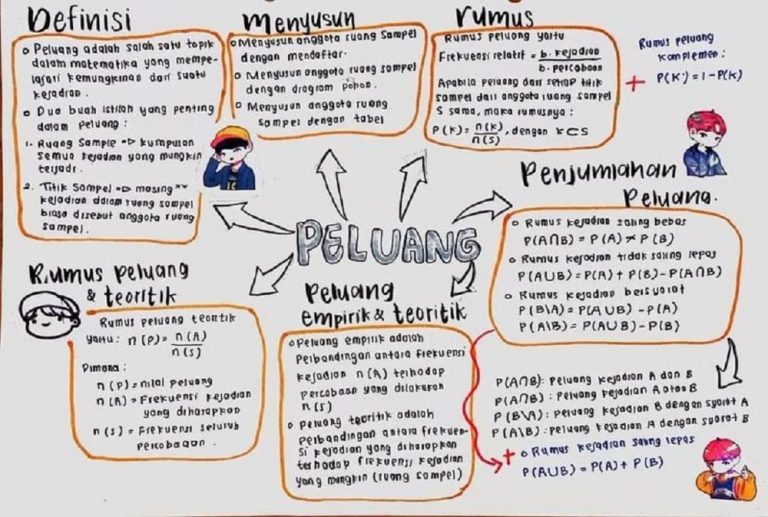 Definisi
o Peluang adalah salah satu topik
dalam matematika yang mempe-
lajari kemungkinan dari suatu
kejadian.
o Dua buah istilah yang penting
dalam peluang :
1. Ruang Sample => kumpulan
semua kejadian yang mungkin
terjadi.
2. Titik Sampel => masing""
kejadian dalam ruang sampel
biasa disebut anggota ruang
sampel.
Menyusun
o Menyusun anggota ruang sampel
dengan mendaftar.
o Menyusun anggota ruang sampel
dengan diagram pohon.
o Menyusun anggota ruang
sampel dengan tabel
rumus
Rumus peluang yaitu
Frekuensi relatif = b. kejadian / b. percobaan
Apabila peluang dari setiap titik
sampel dari anggota ruang sampel
S sama, maka rumusnya :
P(K) = n(K) / n(S), dengan K⊂S
+
Rumus peluang
komplemen :
P(K') = 1 - P(K)
PELUANG
Penjumlahan
Peluang.
o Rumus kejadian saling bebas
P(A∩B) = P(A) × P(B)
o Rumus kejadian tidak saling lepas
P(A∪B) = P(A) + P(B) - P(A∩B)
o Rumus kejadian bersyarat
P(B\A) = P(A∪B) - P(A)
P(A\B) = P(A∪B) - P(B)
P(A∩B) : Peluang kejadian A dan B
P(A∩B) : Peluang kejadian A atau B
P(B\A) : Peluang kejadian B dengan syarat A
P(A\B) : peluang kejadian A dengan syarat B
+ o Rumus kejadian saling lepas
P(A∪B) = P(A) + P(B)
Rumus peluang
& teoritik
Rumus peluang teoritik
yaitu : n(P) = n(A) / n(S)
Dimana :
n(P) = nilai peluang
n(A) = Frekuensi kejadian
yang diharapkan
n(S) = Frekuensi seluruh
percobaan.
Peluang
empirik & teoritik
o Peluang empirik adalah
Perbandingan antara frekuensi
kejadian n(A) terhadap
percobaan yang dilakukan
n(S)
o Peluang teoritik adalah
Perbandingan antara frekuen-
si kejadian yang diharapkan
terhadap frekuensi kejadian
yang mungkin (ruang sampel)